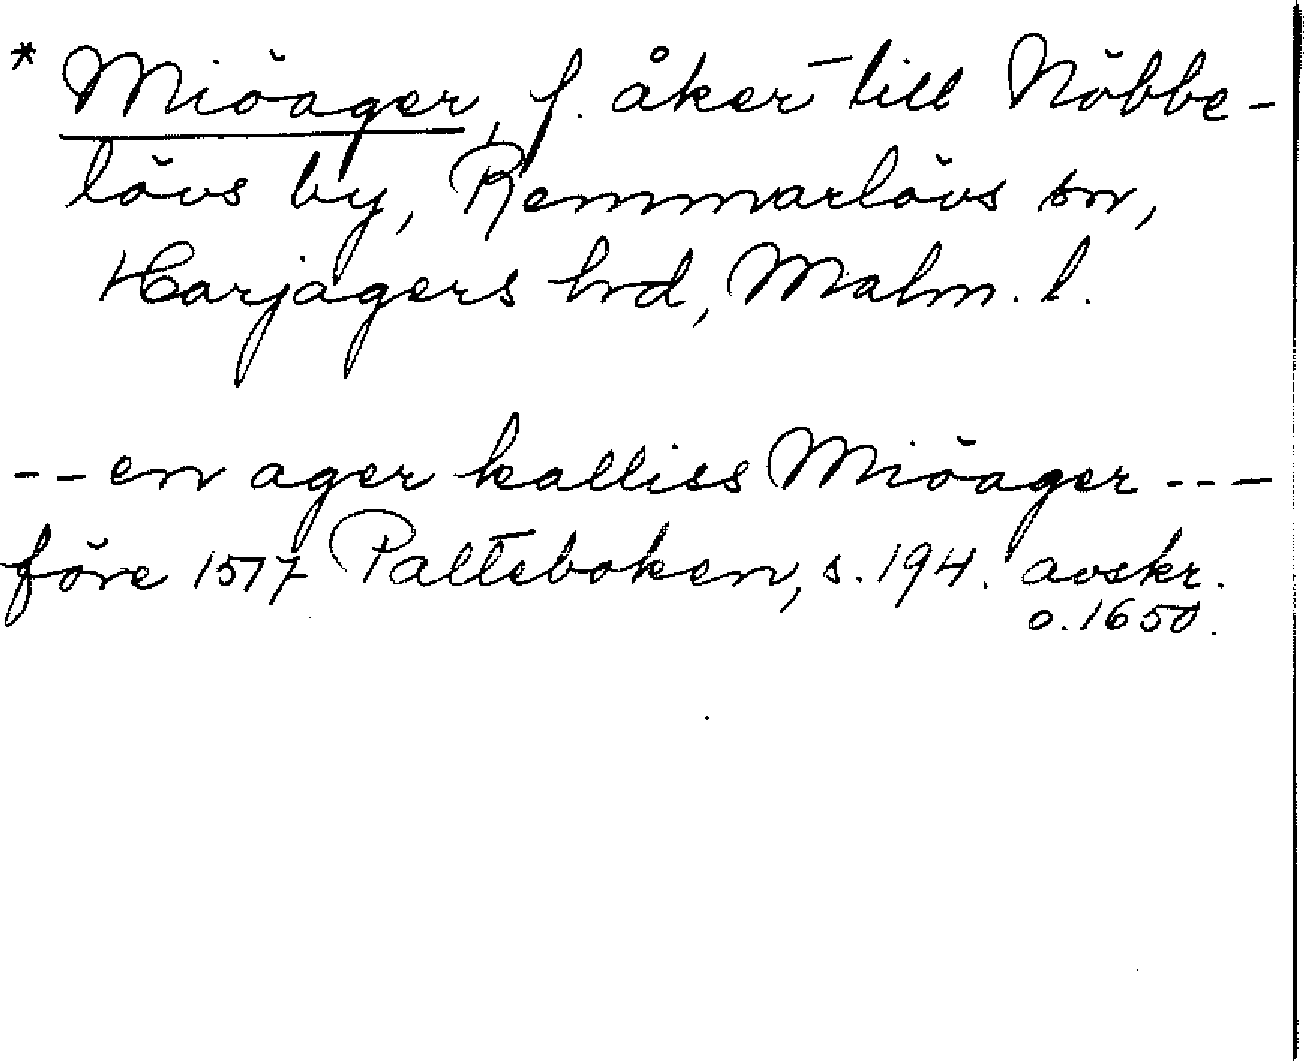 * Miöager, f. åker till Nöbbe-
lövs by, Remmarlövs sn,
Harjagers hrd, Malm. l.
-- en ager kalliss Miöager ---
före 1517 Palteboken, s. 194. avskr.
o. 1650.